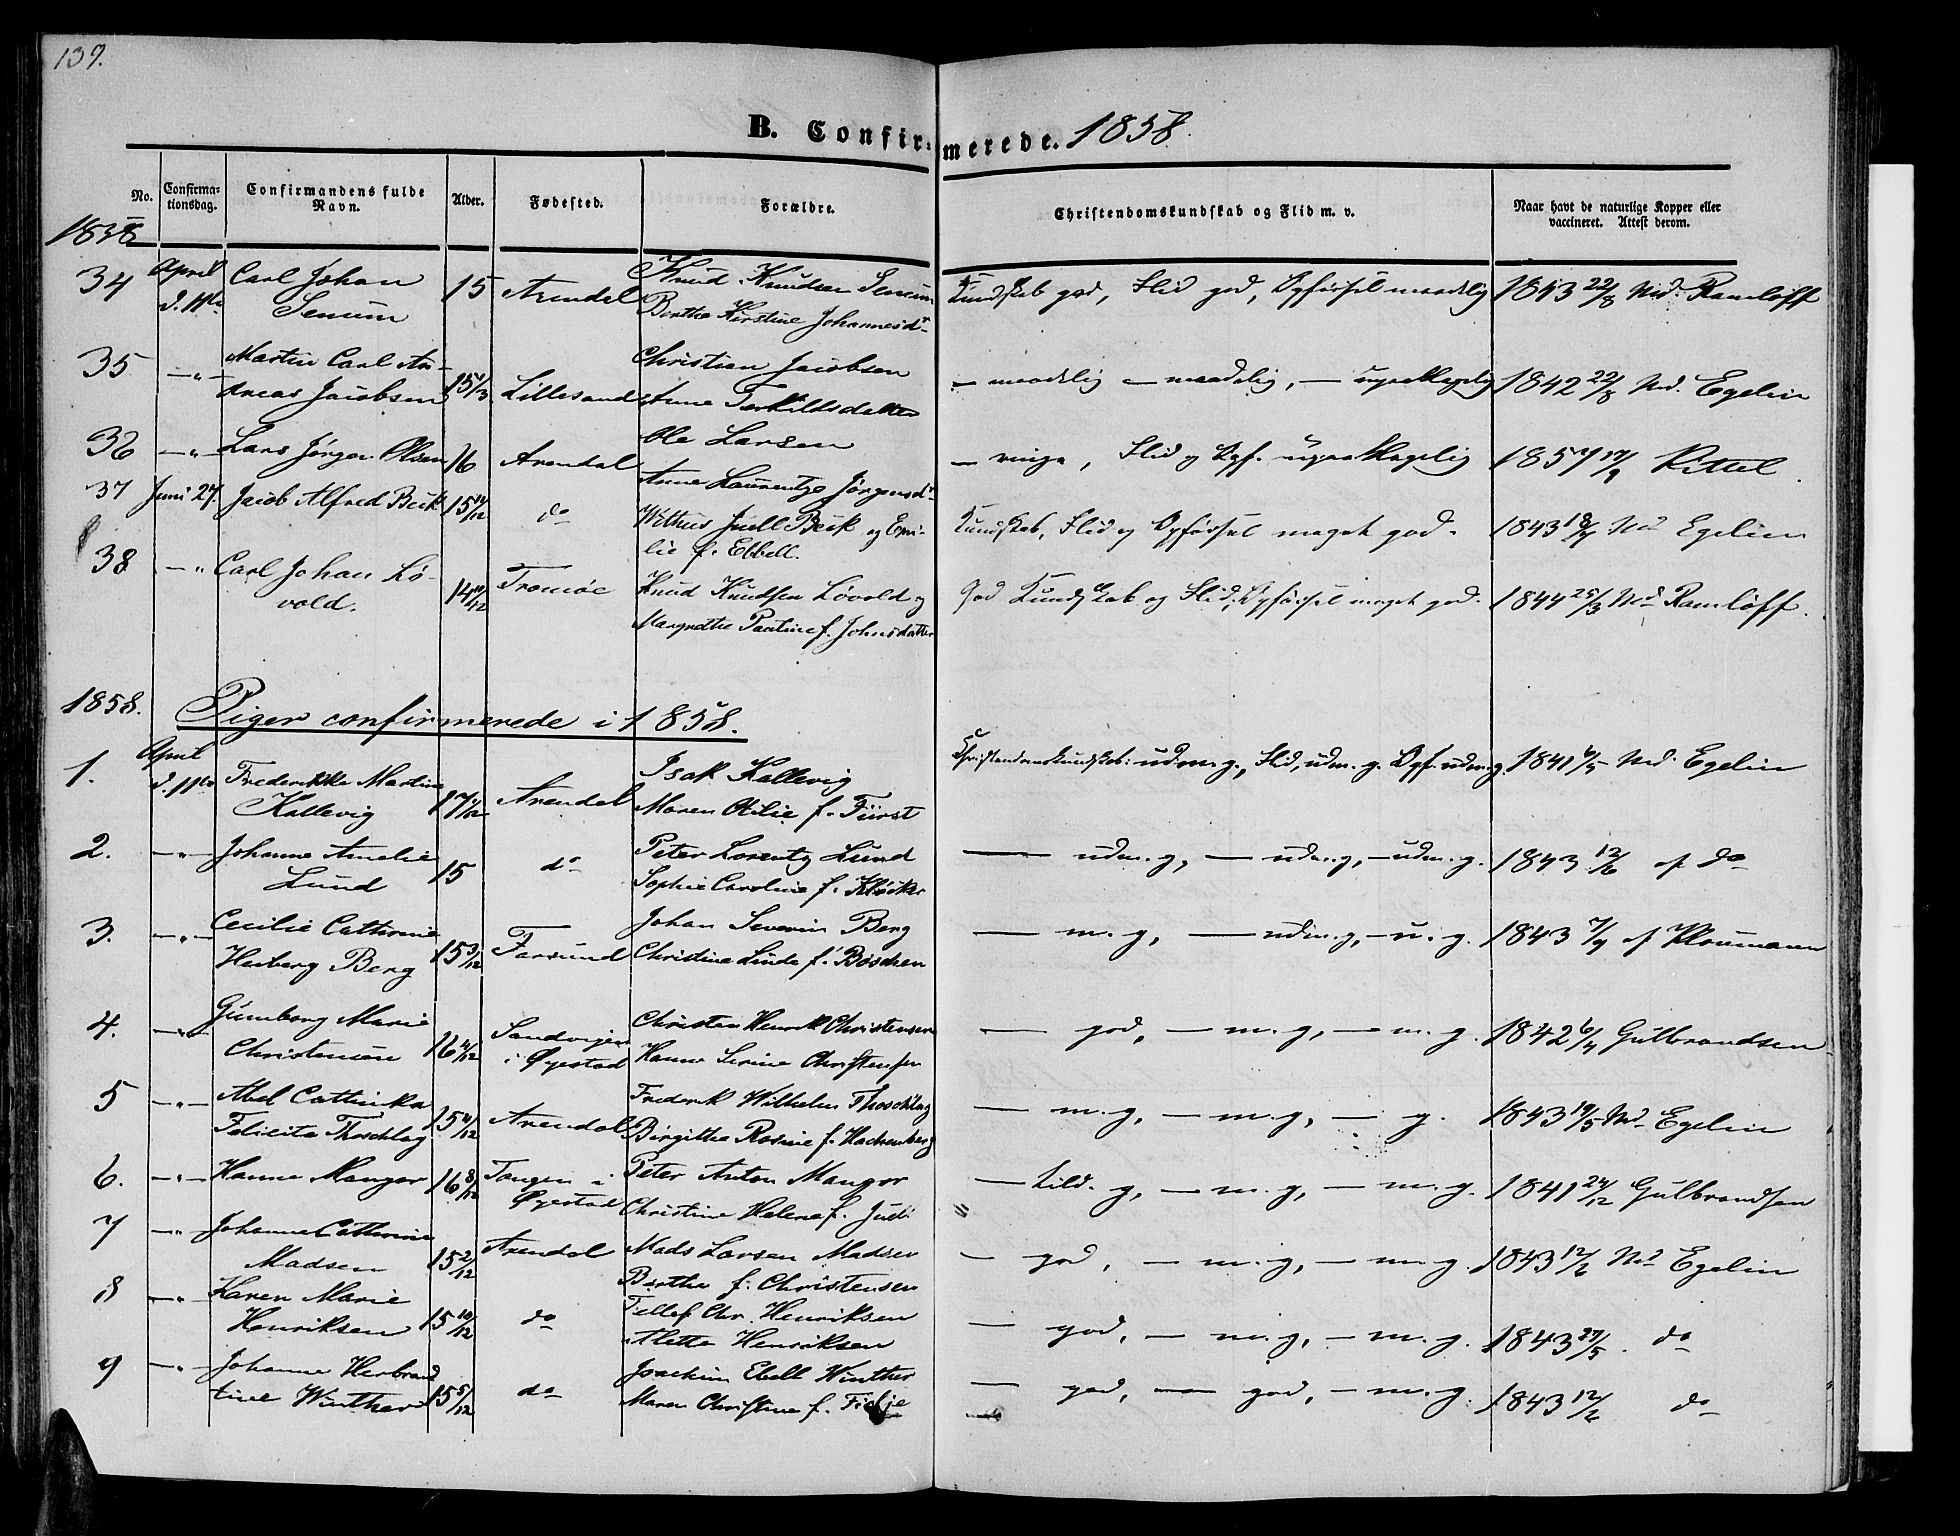 139.
B. Confirmerede. 1858.
No.
Confirmationsdag.
Confirmandens fulde Navn.
Alder.
Fødested.
Forældre.
Christendomskundskab og Flid m. v.
Naar havt de naturlige Kopper eller vaccineret. Attest derom.
1858
34 April d. 11te Carl Johan Senum 15 Arendal Knud Knudsen Senum Berthe Kirstine Johannesdr Kundskab god, Flid god, Opførsel maadelig 1843 22/8 Md. Ramløff
35 —"— Martin Carl Andreas Jacobsen 15 1/3 Lillesand Christian Jacobsen Anne Terkildsdatter — maadelig — maadelig, — upaaklagelig 1842 22/8 Md. Egelin
36 —"— Lars Jørgen Olsen 16 Arendal Ole Larsen Anne Laurentze Jørgensdr — ringe, Flid og Opf. upaaklagelig 1857 Kittel.
37 Juni 27. Jacob Alfred Beck 15 do Juell Beck og Emilie f. Ebbell. Kundskab, Flid og Opførsel meget god. 1843 Md Egelin
38 —" Carl Johan Løvold. 14 Tromøe Knud Knudsen Løvold og Margrethe Pauline f. Johnsdatter God Kundskab og Flid, Opførsel meget god. 1844 25/3 Md Ramløff.
1858. Piger confirmerede i 1858.
1. April d. 11te Frederikke Martine Kallevig 17 Arendal Isak Kallevig Maren Otilie f. Fürst Christendomskundskab: udm. g., Flid, udm. g. Opf. udm. g. 1841 6/5 Md. Egelin
2. —"— Johanne Amelie Lund 15 do Peter Lorentz Lund Sophie Caroline f. Kløcker — udm. g, — udm. g, — udm. g. 1843 12/6 af do
3. —"— Cecilie Cathrine Herberg Berg 15 3/12 Farsund Johan Severin Berg Christine Linde f. Boschen — m. g, — udm. g, — u. g. 1843 af Ploumann
4. —"— Gunborg Marie Christensen 16 Sandvigen i Øyestad Christen Henrik Christensen Hanne Serine Christensen — god, — m. g, — m. g. 1842 Gulbrandsen
5 —"— Abel Cathinka Felicita Thoschlag 15 4/12 Arendal Frederik Wilhelm Thoschlag Birgitha Rosine f. Hachenberg — m. g, — m. g, — g. 1843 19/5 Md Egelin
6. —"— Hanne Mangor 16 8/12 Tangen i Øyestad Peter Anton Mangor Christine Helene f. Juel — tild. g, — m. g, — m. g. 1841 24/12 Gulbrandsen
7 —"— Johanne Cathrine Madsen 15 2/12 Arendal Mads Larsen Madsen Berthe f. Christensen — god, — m. g, — m. g. 1843 12/6 Md Egelin
8 —"— Karen Marie Henriksen 15 10/12 do Tellef Chr. Henriksen Alette Henriksen — god, — m. g, — m. g. 1843 27/5. do
9 —"— Johanne Herbrandtine Winther 15 5/12 do Joachim Ebell Winther Maren Christine f. — god, — god, — m. g. 1843 12/6 do